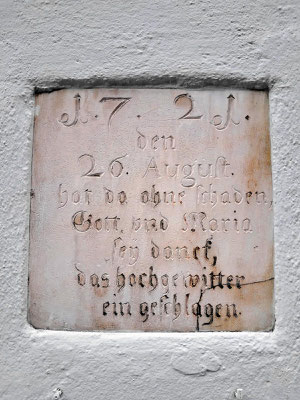 1.7.21.
den
26. August.
hat da ohne schaden,
Gott und Maria
sey danck,
das hochgewitter
ein geschlagen.